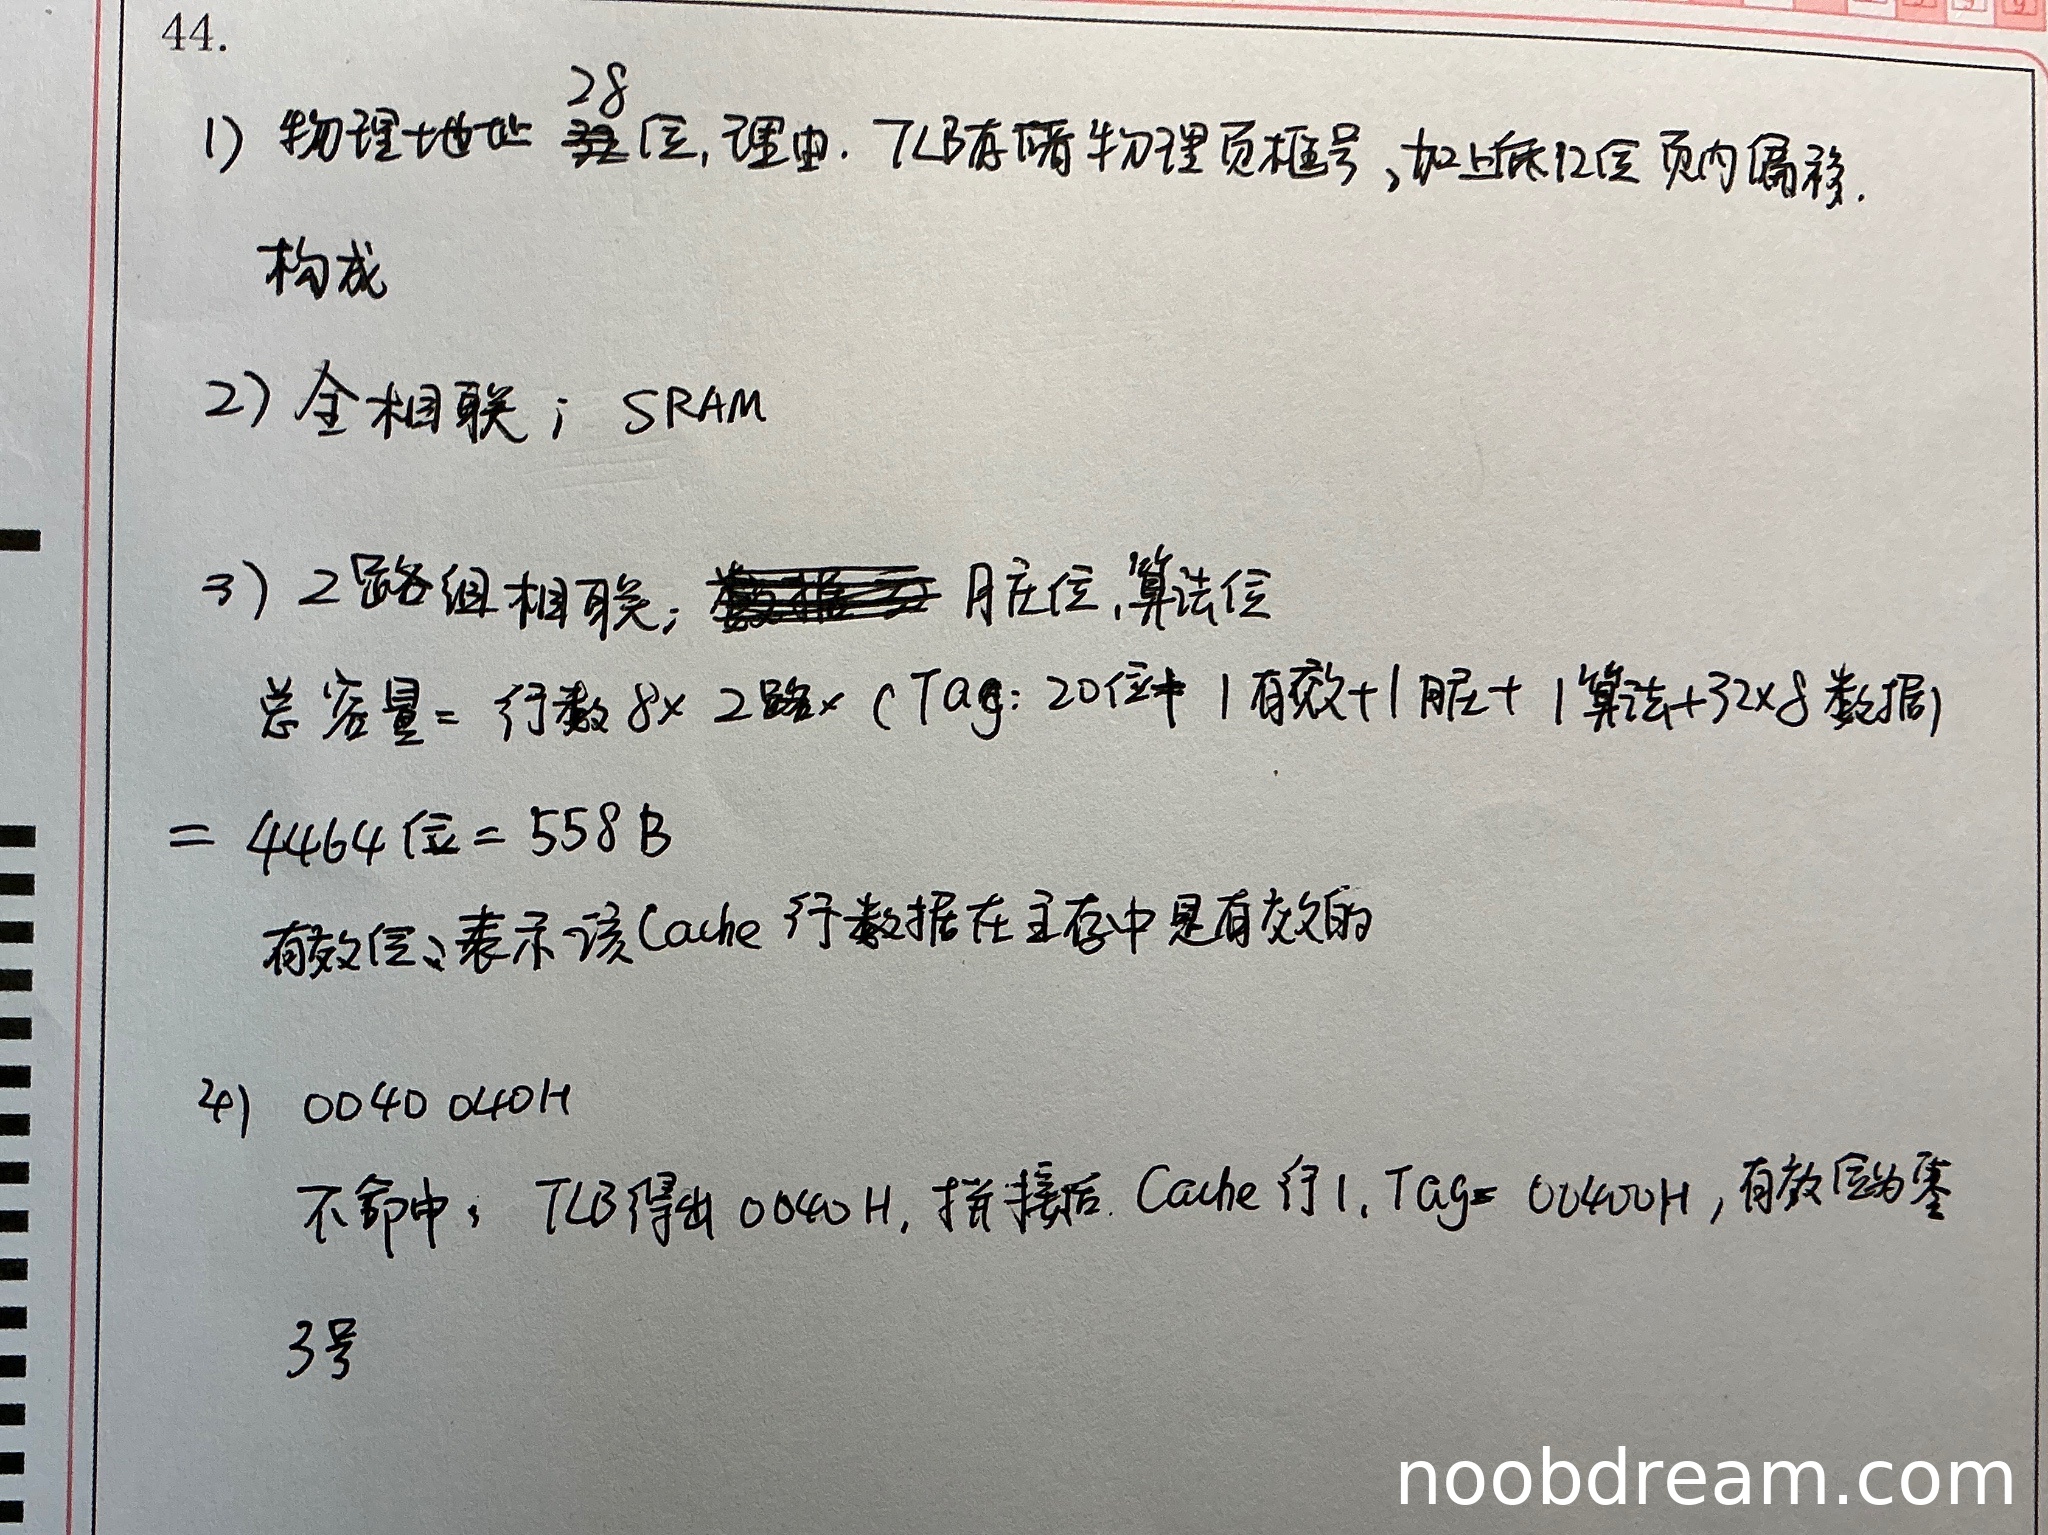 44.
1) 物理地址 28位,理由. TLB存储物理页框号,加上低12位页内偏移.
构成
2) 全相联; SRAM
3) 2路组相联; 脏位,算法位
总容量= 行数8× 2路× (Tag: 20位+ 1有效+1脏+ 1算法+32×8数据)
= 4464位= 558B
有效位、表示该Cache行数据在主存中是有效的
4) 0040 040H
不命中; TLB得出0040H, 拼接后. Cache行1. Tag= 00400H, 有效位为零
3号
noobdream.com